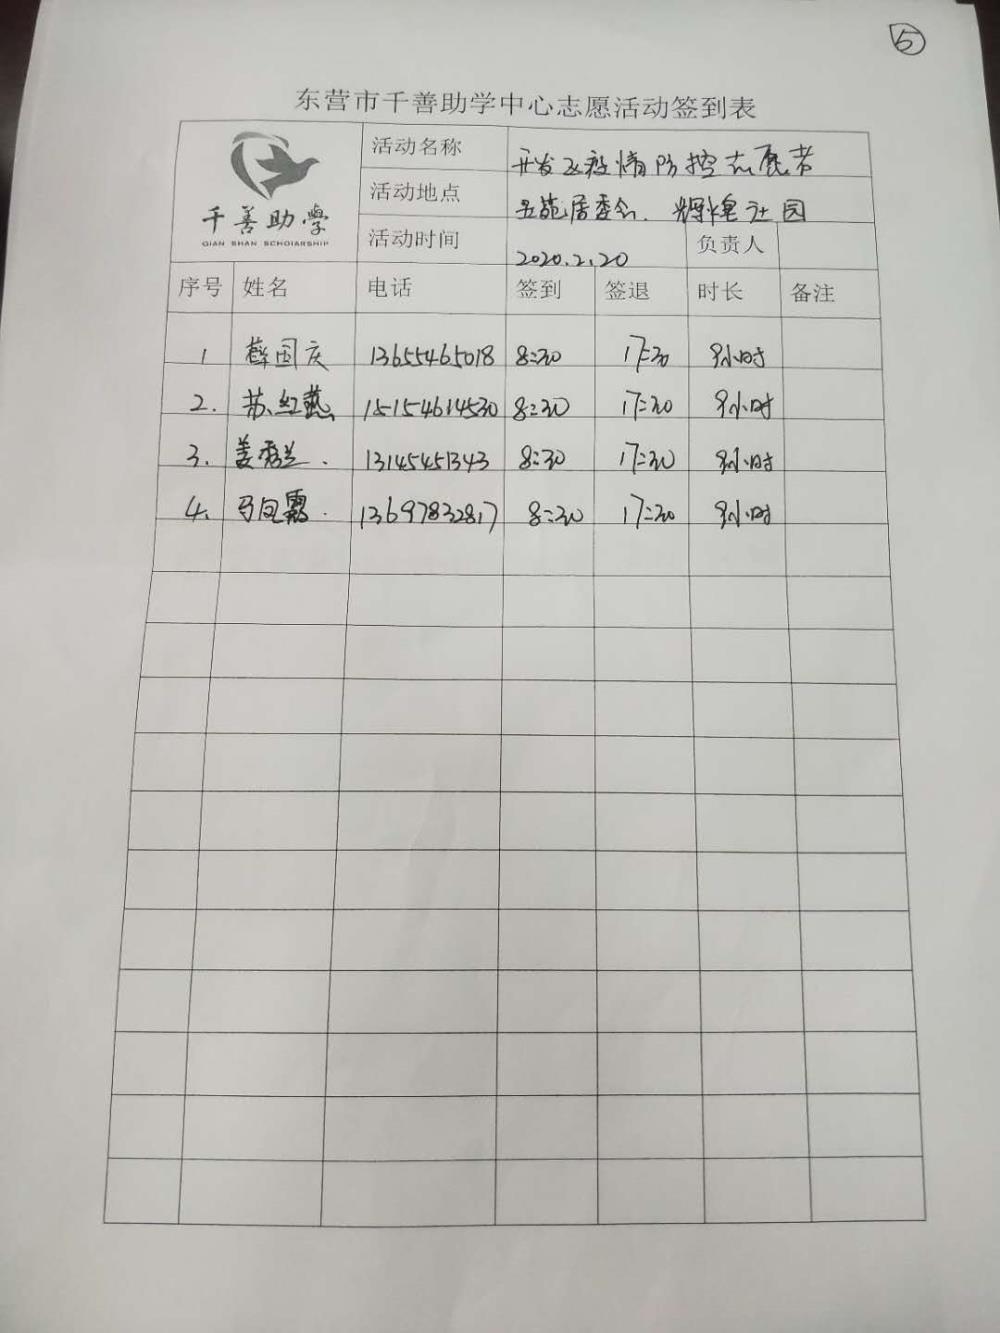 ⑤
东营市千善助学中心志愿活动签到表
千善助學
QIAN SHAN SCHOLARSHIP
活动名称 开发区疫情防控志愿者
活动地点 五苑居委会、辉煌社园
活动时间 2020.2.20 负责人
序号 姓名 电话 签到 签退 时长 备注
1 薛国庆 13655465018 8:30 17:30 9小时
2. 苏红艳 15154614530 8:30 17:30 9小时
3. 姜秀兰. 13145451343 8:30 17:30 9小时
4. 马凤霞. 13697832817 8:30 17:30 9小时